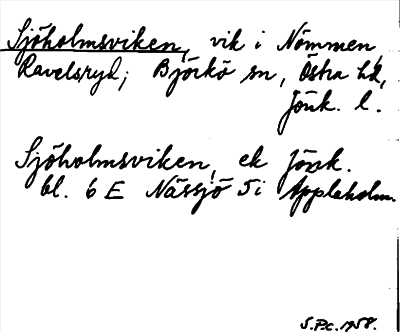 Sjöholmsviken, vik i Nömmen,
Ravelsryd; Björkö sn, Östra hd,
Jönk. l.
Sjöholmsviken, ek Jönk.
bl. 6 E Nässjö 5i Äppleholm.
S.P.c. 1958.